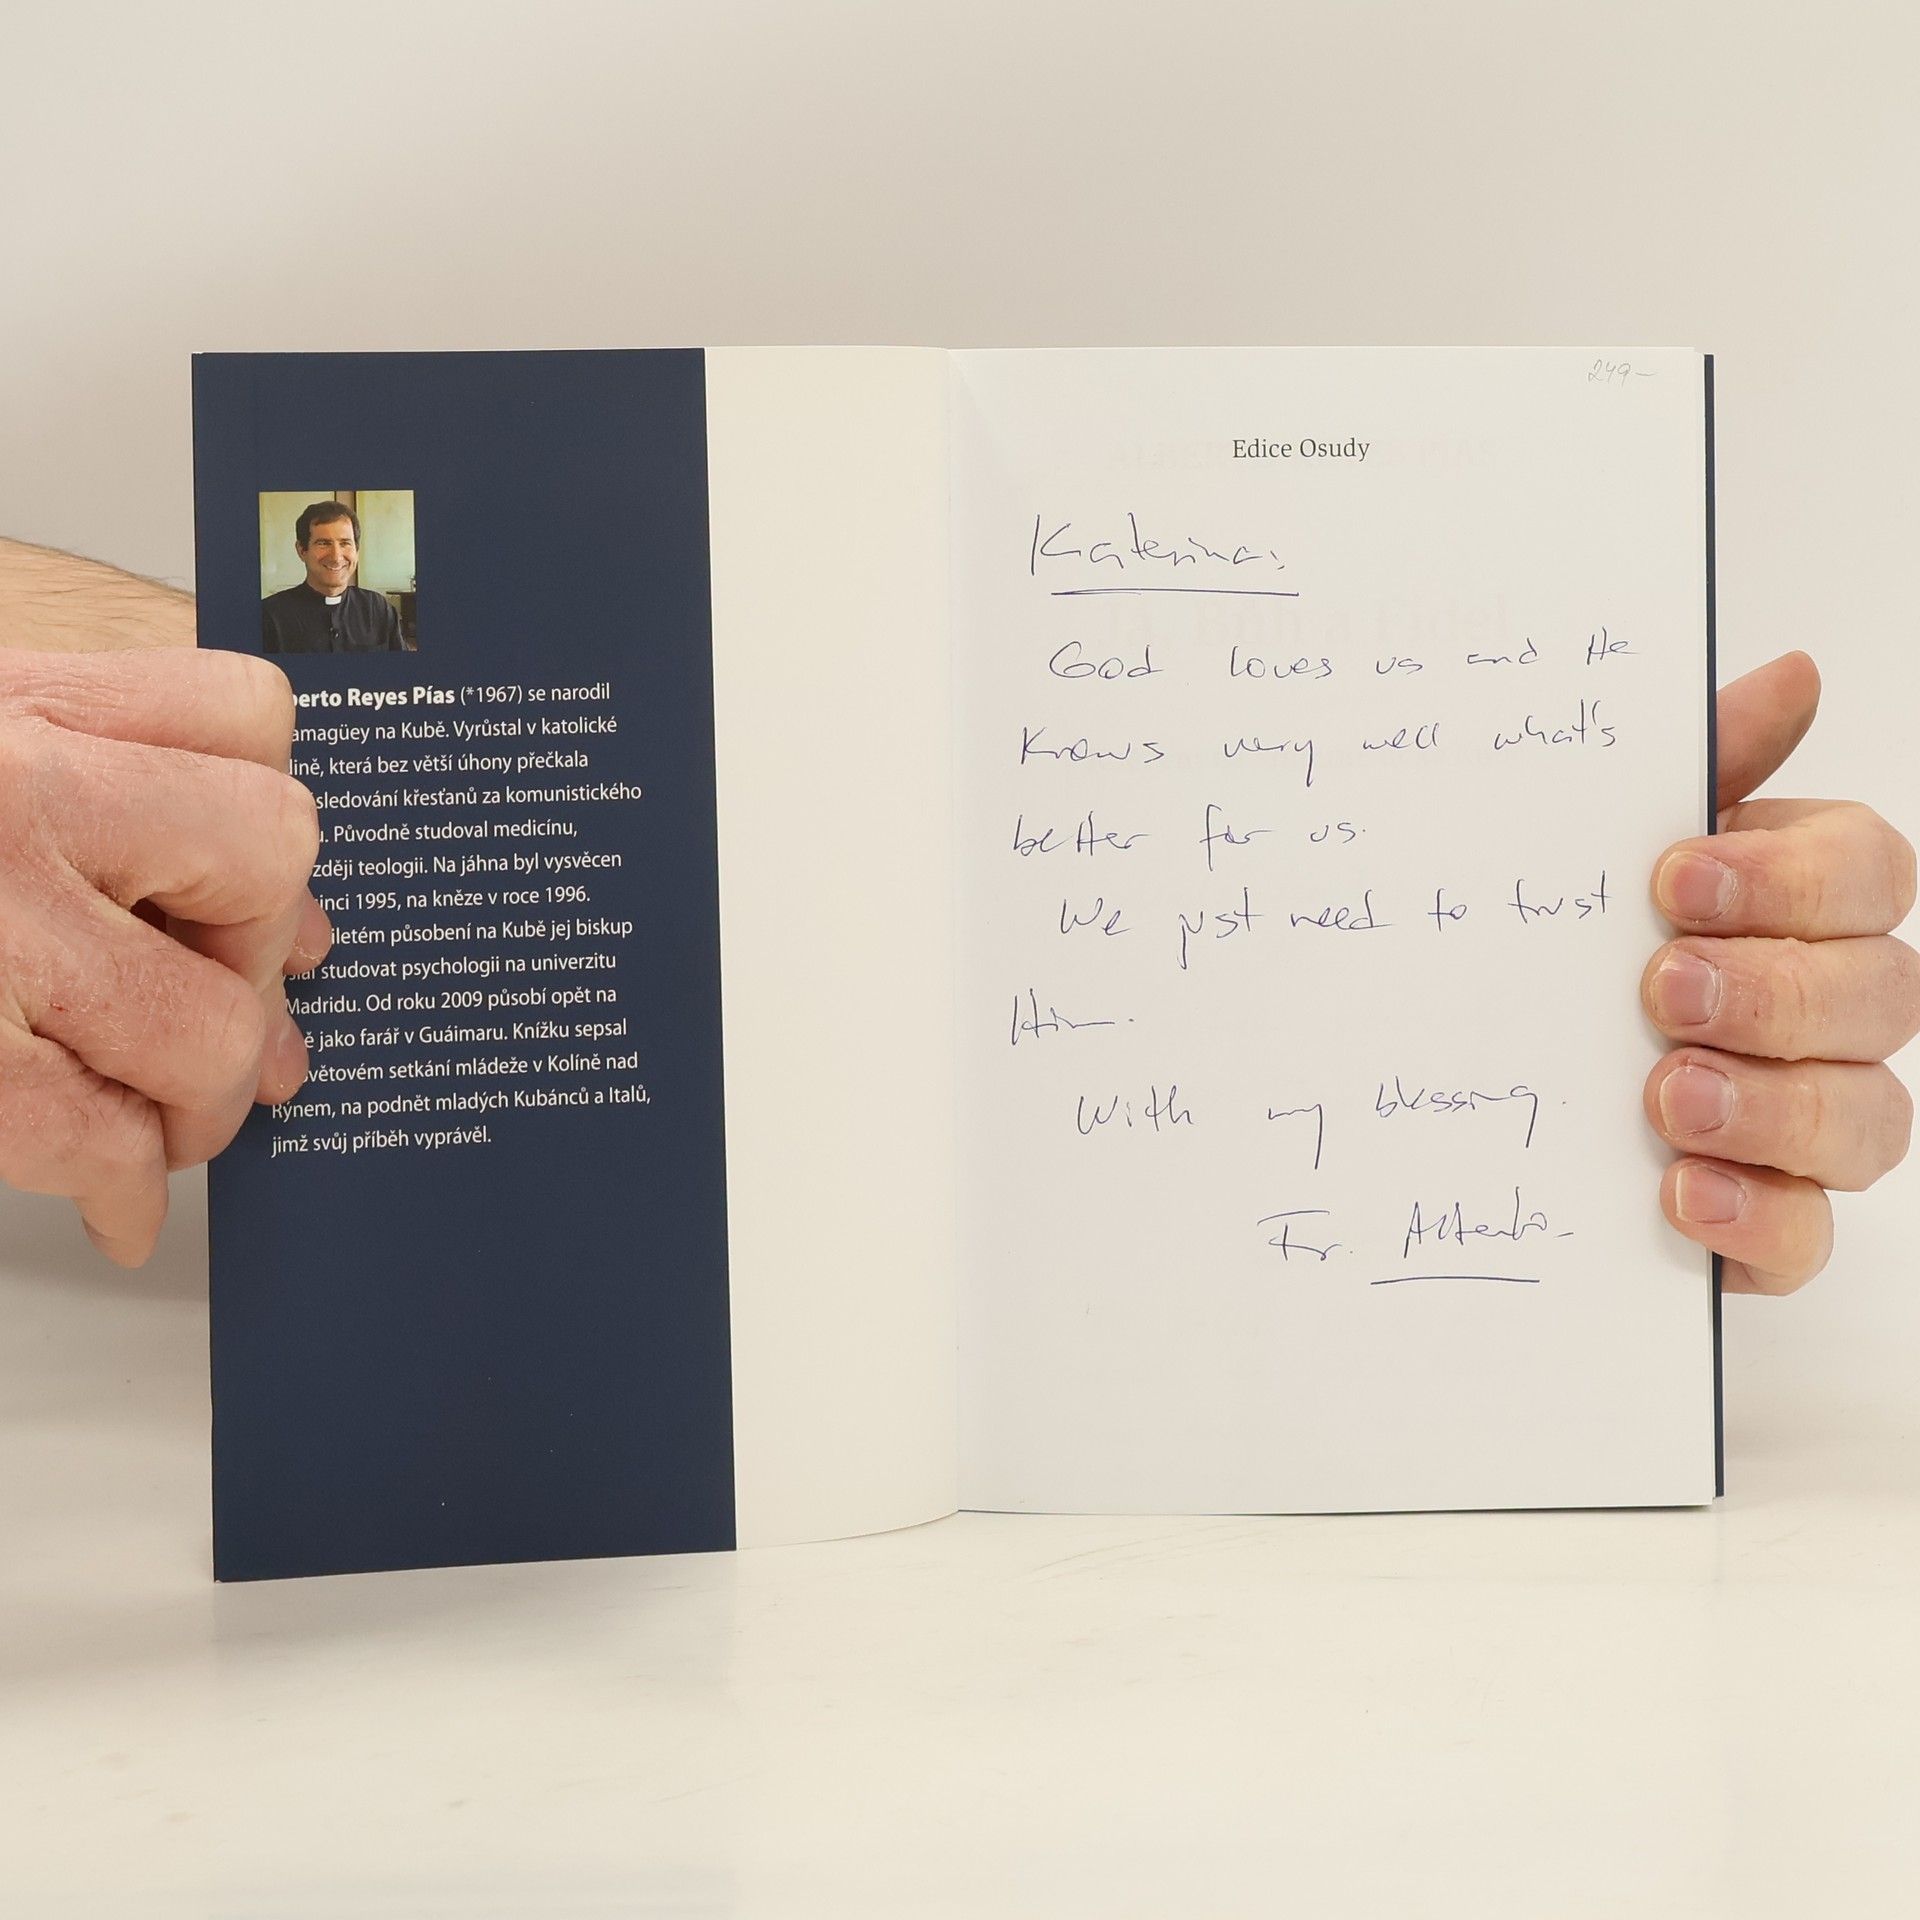 Reyes Pías (*1967) se narodil
na Kubě. Vyrůstal v katolické
která bez větší úhony přečkala
křesťanů za komunistického
Původně studoval medicínu,
teologii. Na jáhna byl vysvěcen
1995, na kněze v roce 1996.
působení na Kubě jej biskup
studovat psychologii na univerzitu
Madridu. Od roku 2009 působí opět na
jako farář v Guáimaru. Knížku sepsal
setkání mládeže v Kolíně nad
Rýnem, na podnět mladých Kubánců a Italů,
jimž svůj příběh vyprávěl.
249-
Edice Osudy
Katerina:
God loves us and He
knows very well what's
better for us.
We just need to trust
Him.
With my blessing.
Fr. Alberto